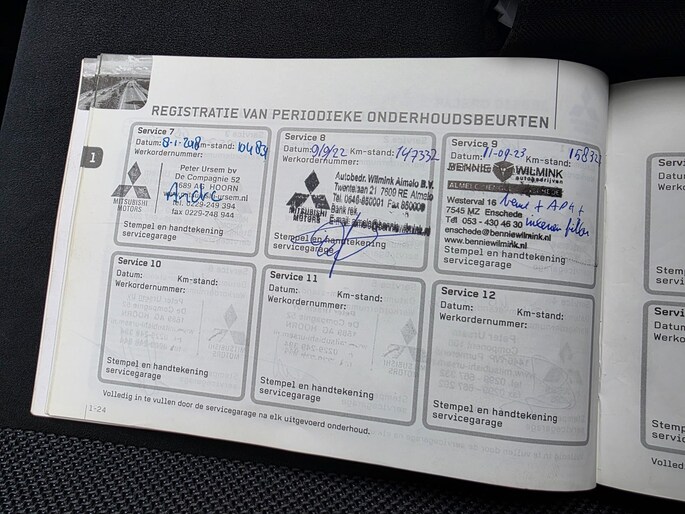 REGISTRATIE VAN PERIODIEKE ONDERHOUDSBEURTEN
1
Service 7
Datum: 8-1-2018 Km-stand: 104831
Werkordernummer:
Peter Ursem bv
De Compagnie 52
1689 AG HOORN
ursem.nl
tel. 0229-249 394
fax 0229-248 944
MITSUBISHI
MOTORS
Stempel en handtekening
servicegarage
Service 8
Datum: 9/9/22 Km-stand: 147332
Werkordernummer:
Autobedr. Wilmink Almelo B.V.
Twentelaan 21 7609 RE Almelo
Tel. 0546-850001 Fax 850009
Bank rek.
E-mail:
MITSUBISHI
MOTORS
Stempel en handtekening
servicegarage
Service 9
Datum: 11-09-23 Km-stand: 15832
Werkordernummer:
BENNIE WILMINK
autobedrijven
Westerval 16
7545 MZ Enschede
Tel 053 - 430 46 30
enschede@benniewilmink.nl
www.benniewilmink.nl
+ APK +
interieur filter
Stempel en handtekening
servicegarage
Service 10
Datum: Km-stand:
Werkordernummer:
Stempel en handtekening
servicegarage
Service 11
Datum: Km-stand:
Werkordernummer:
Stempel en handtekening
servicegarage
Service 12
Datum: Km-stand:
Werkordernummer:
Stempel en handtekening
servicegarage
Volledig in te vullen door de servicegarage na elk uitgevoerd onderhoud.
1-24